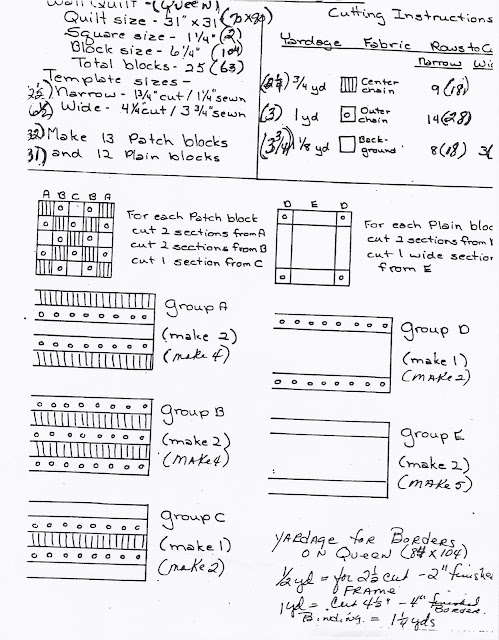 Wall Quilt - (Queen)
Quilt size - 31" x 31" (90x90)
Square size - 1 1/4" (2)
Block size - 6 1/4" (10)
Total blocks - 25 (63)
Template sizes -
Narrow - 1 3/4" cut / 1 1/4" sewn
Wide - 4 1/4" cut / 3 3/4" sewn
(32) Make 13 Patch blocks
(31) and 12 Plain blocks
Cutting Instructions
Yardage Fabric Rows to C
Narrow Wi
(2 1/4) 3/4 yd Center chain 9 (18)
(3) 1 yd Outer chain 14 (28)
(3 3/4) 1 1/8 yd Back-ground 8 (18) 3(
A B C B A
For each Patch block
cut 2 sections from A
cut 2 sections from B
cut 1 section from C
D E D
For each Plain bloc
cut 2 sections from
cut 1 wide sectio
from E
Group A
(make 2)
(make 4)
Group B
(make 2)
(MAKE 4)
Group C
(make 1)
(make 2)
Group D
(make 1)
(MAKE 2)
Group E
(make 2)
(MAKE 5)
YARDAGE for Borders
ON QUEEN (84 x 104)
1/2 yd = for 2 1/2 cut - 2" finished
FRAME
1 yd = cut 4 1/2" - 4" finished
Border.
Binding = 1 1/2 yds